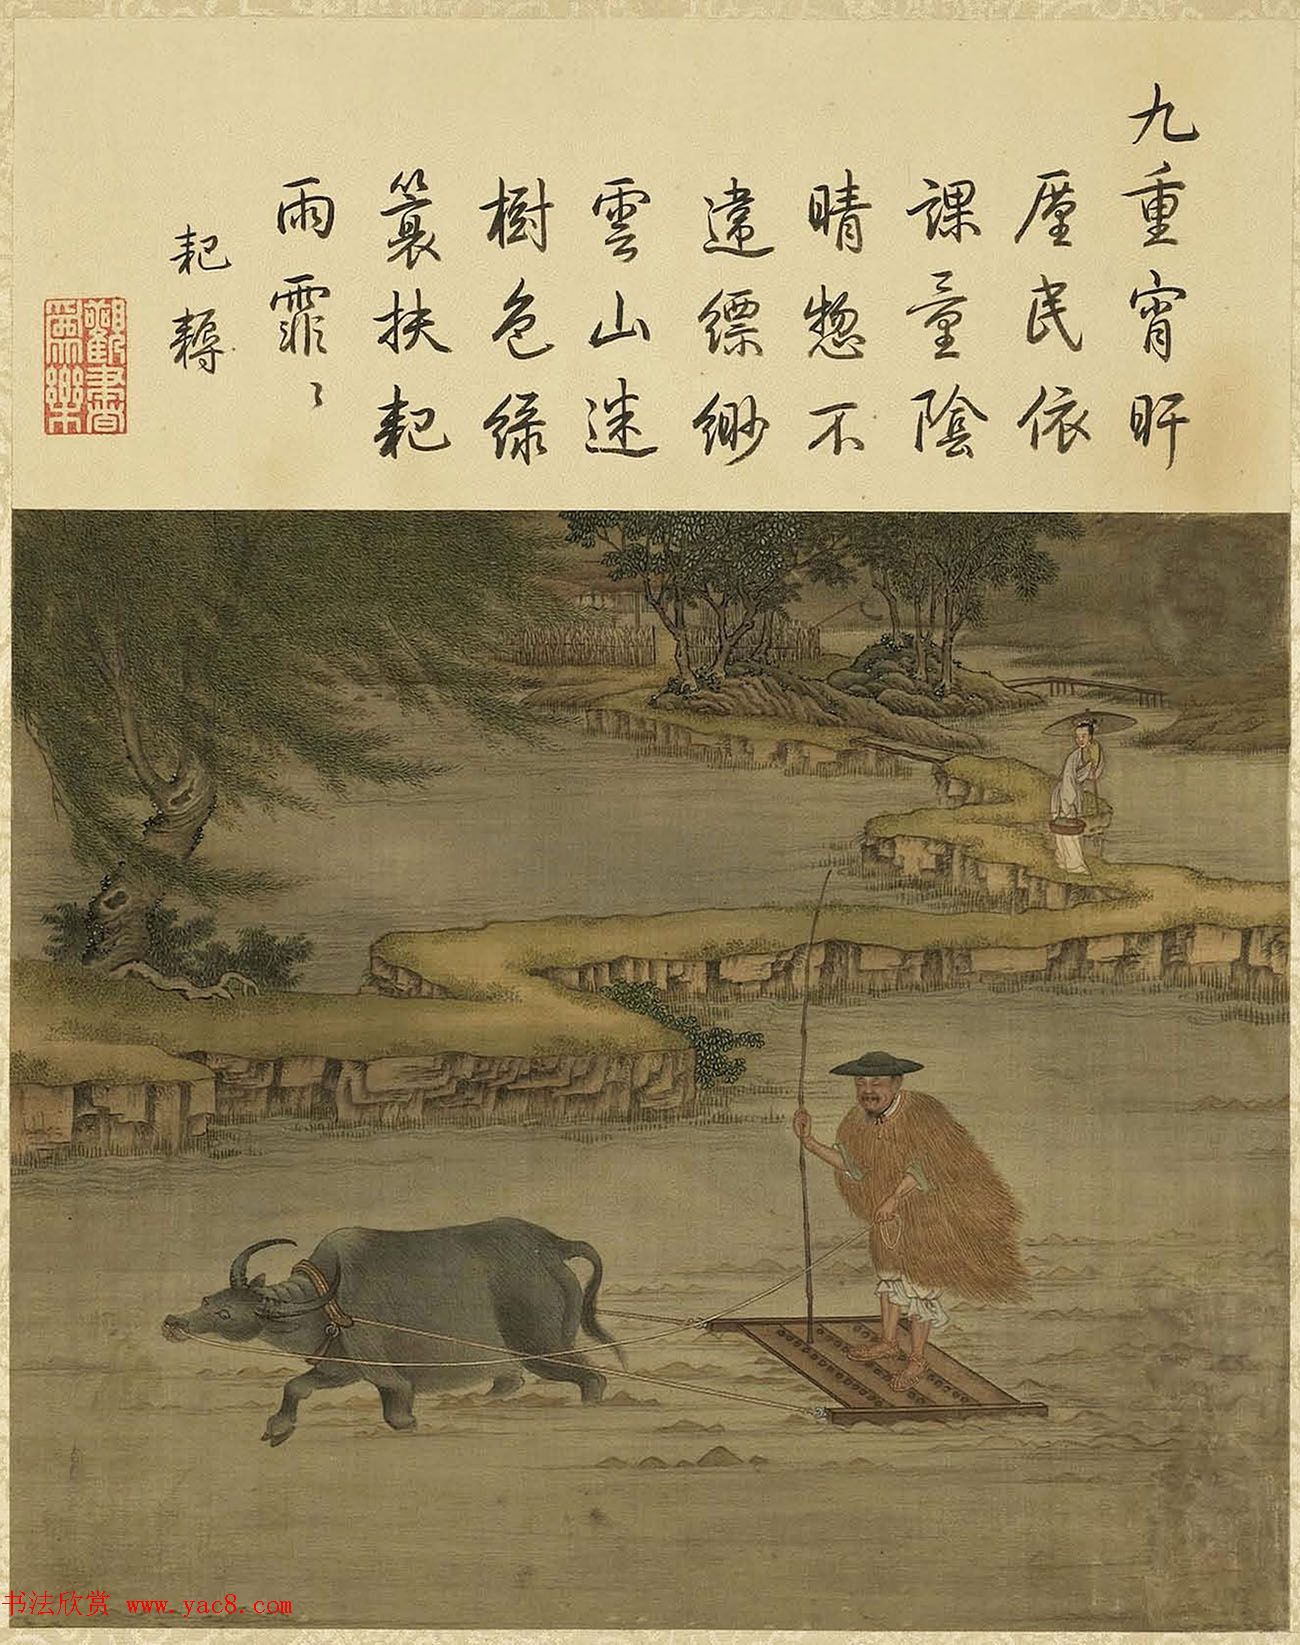 九重宵旰
廑民依
課量陰
晴惣不
違縹緲
雲山迷
樹色綠
蓑扶耙
雨霏〻
耙耨
觀書爲樂
书法欣赏 www.yac8.com